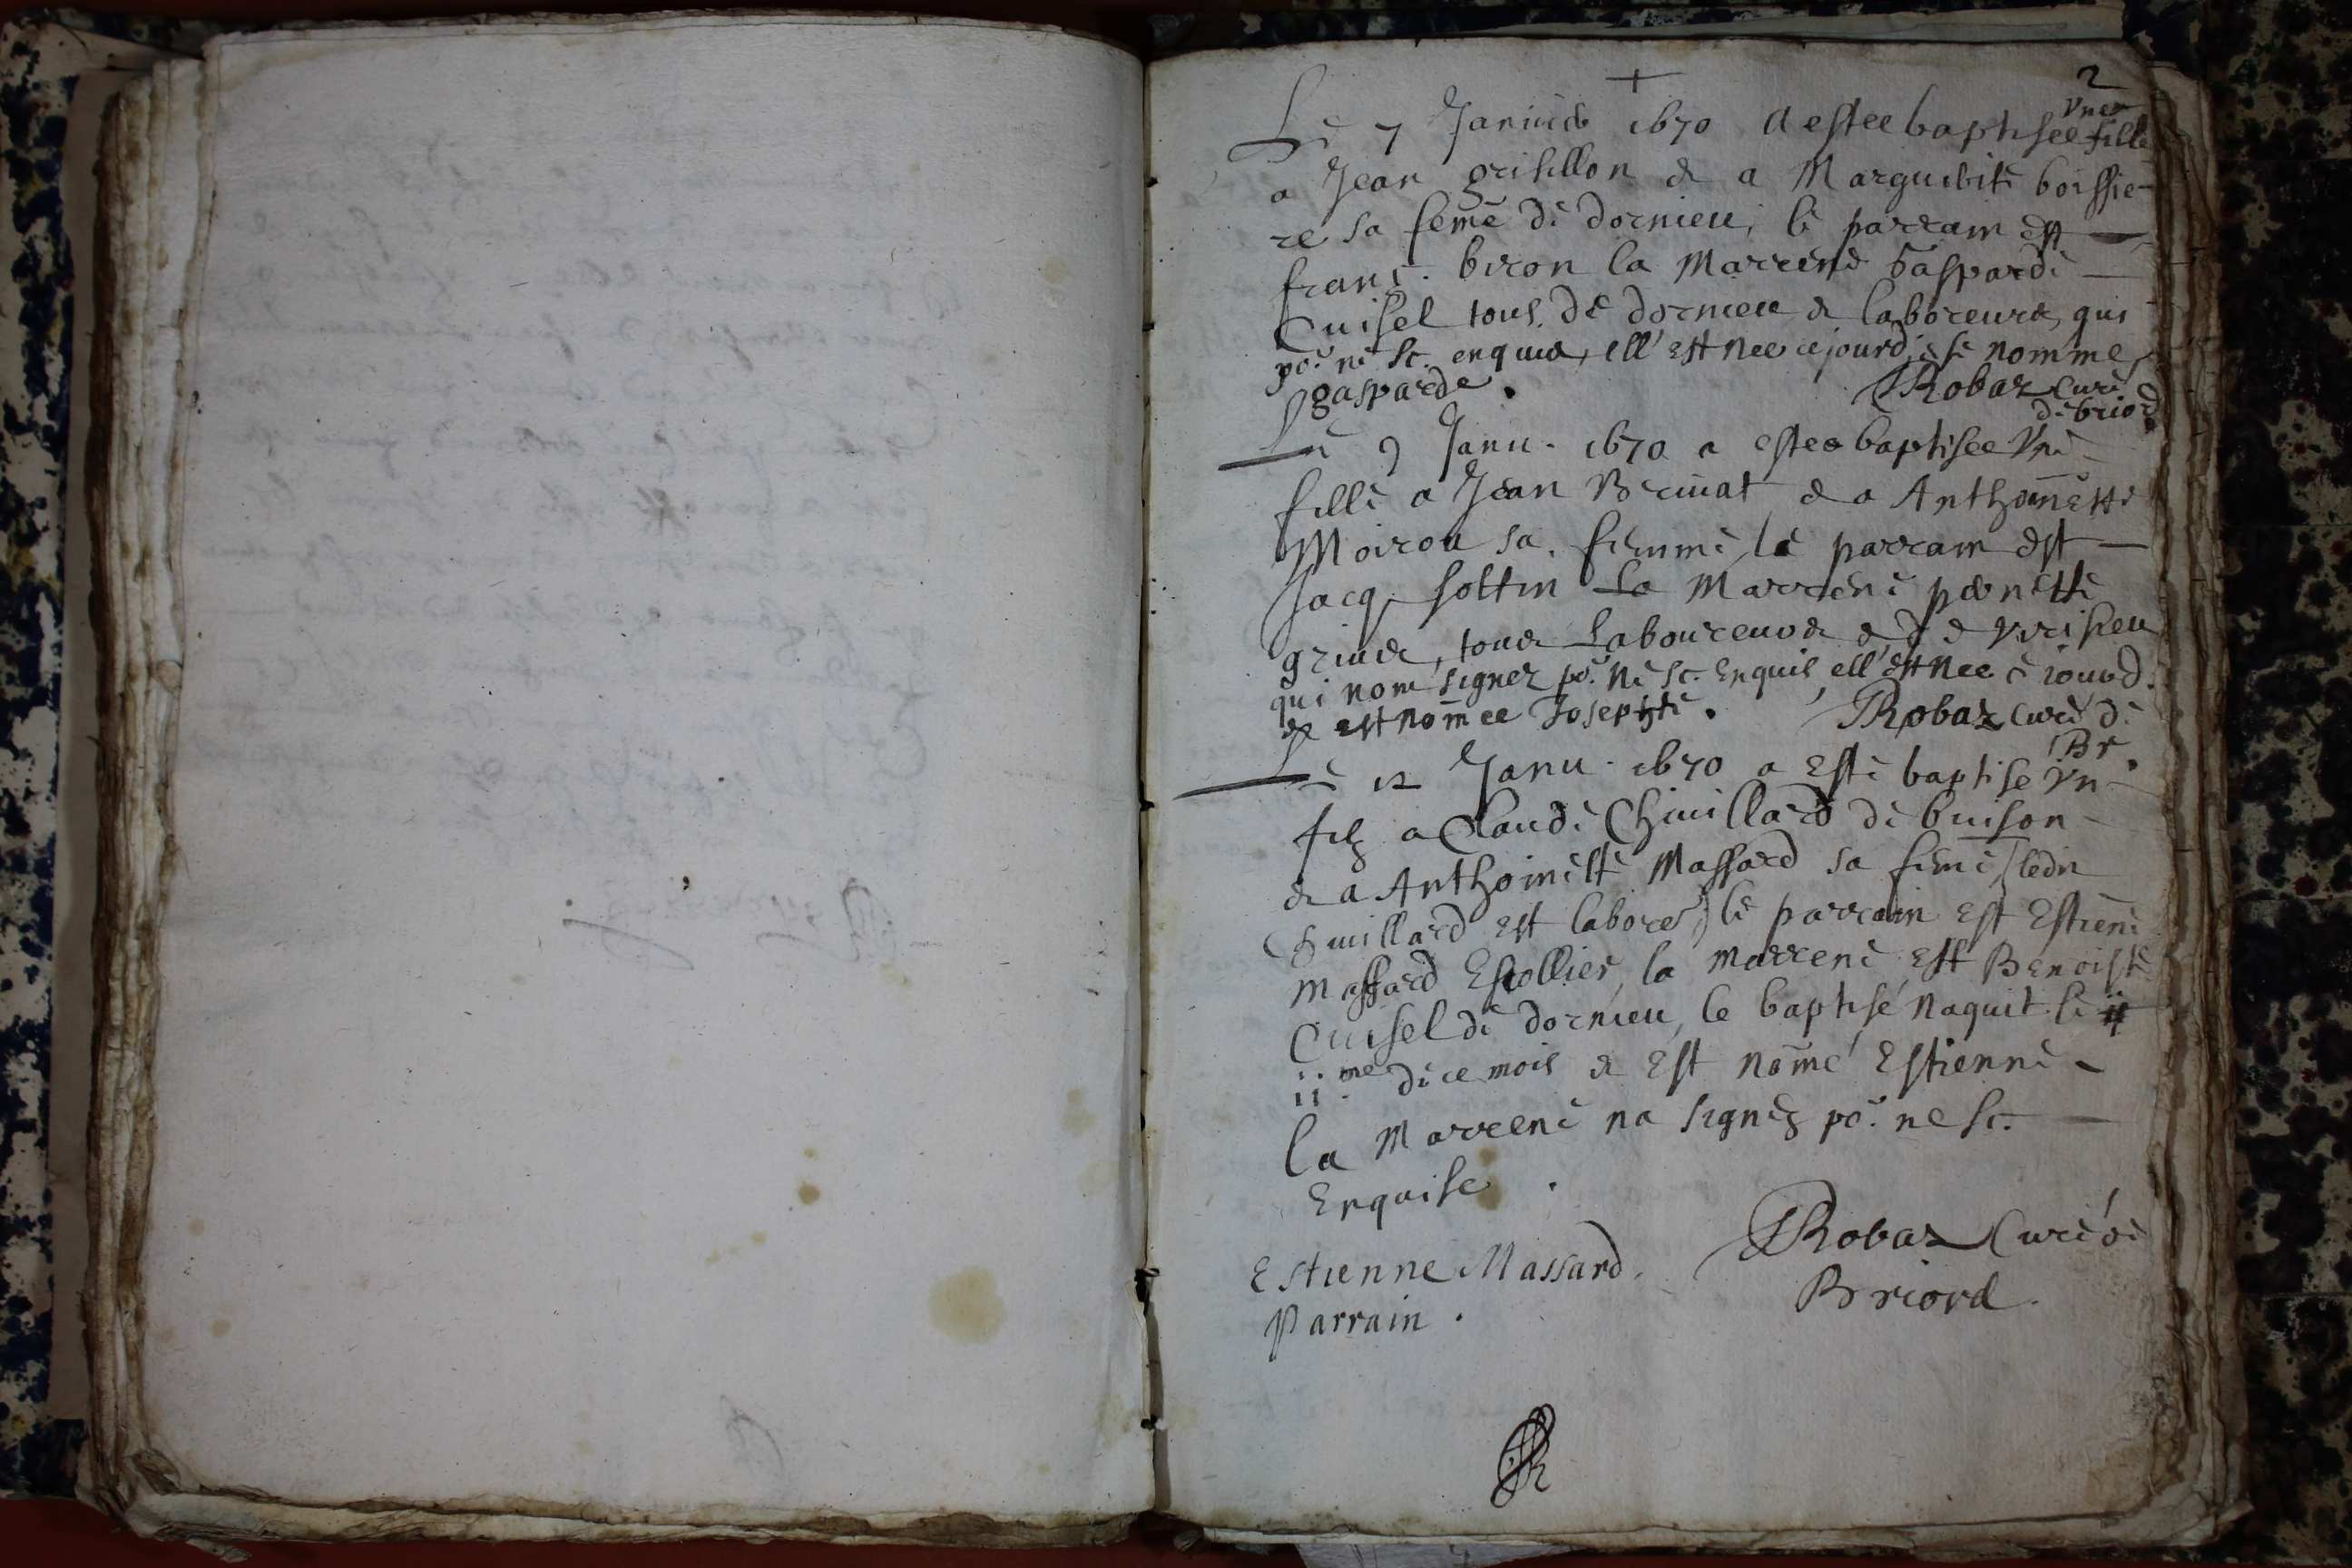 +
2
Le 7 Januier 1670 a estee baptisee vne fille
a Jean grisillon & a Marguerite boissie-
re sa feme de dornieu, le parrain est
franc. biron la Marrene Gasparde
Cuisel tous de dornieu & laboreurs, qui
po. ne sc. enquis, ell'est nee ce jourd. & se nomme
gasparde. Robaz Curé
de briord
Le 9 Janu. 1670 a estee baptisee Vne
fille a Jean & a Anthoinette
Moirou sa femme, le parrain est
Jacq. sottin La Marrene pernette
tous Laboureurs & de
qui nont signez po. ne sc. Enquis, ell'est nee ce iourd.
& est nomee Josephte. Robaz Curé de
Br.
Le 12 Janu. 1670 a este baptise Vn
filz a Claude Chuillard de buison
& a Anthoinette Massard sa feme, (ledit
Chuillard est labore.) le parrain est Estiene
Massard Escollier, la marrene est Benoiste
Cuisel de dornieu, le baptisé naquit le
ii.me de ce mois & Est nomé Estienne
la Marrene na signez po. ne sc.
Enquise.
Estienne Massard
Parrain.
Robaz Curé de
Briord.